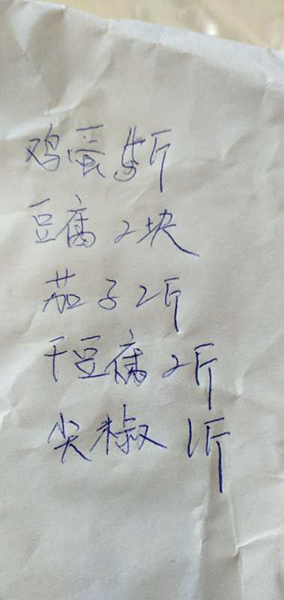 鸡蛋5斤
豆腐2块
茄子2斤
干豆腐2斤
尖椒1斤